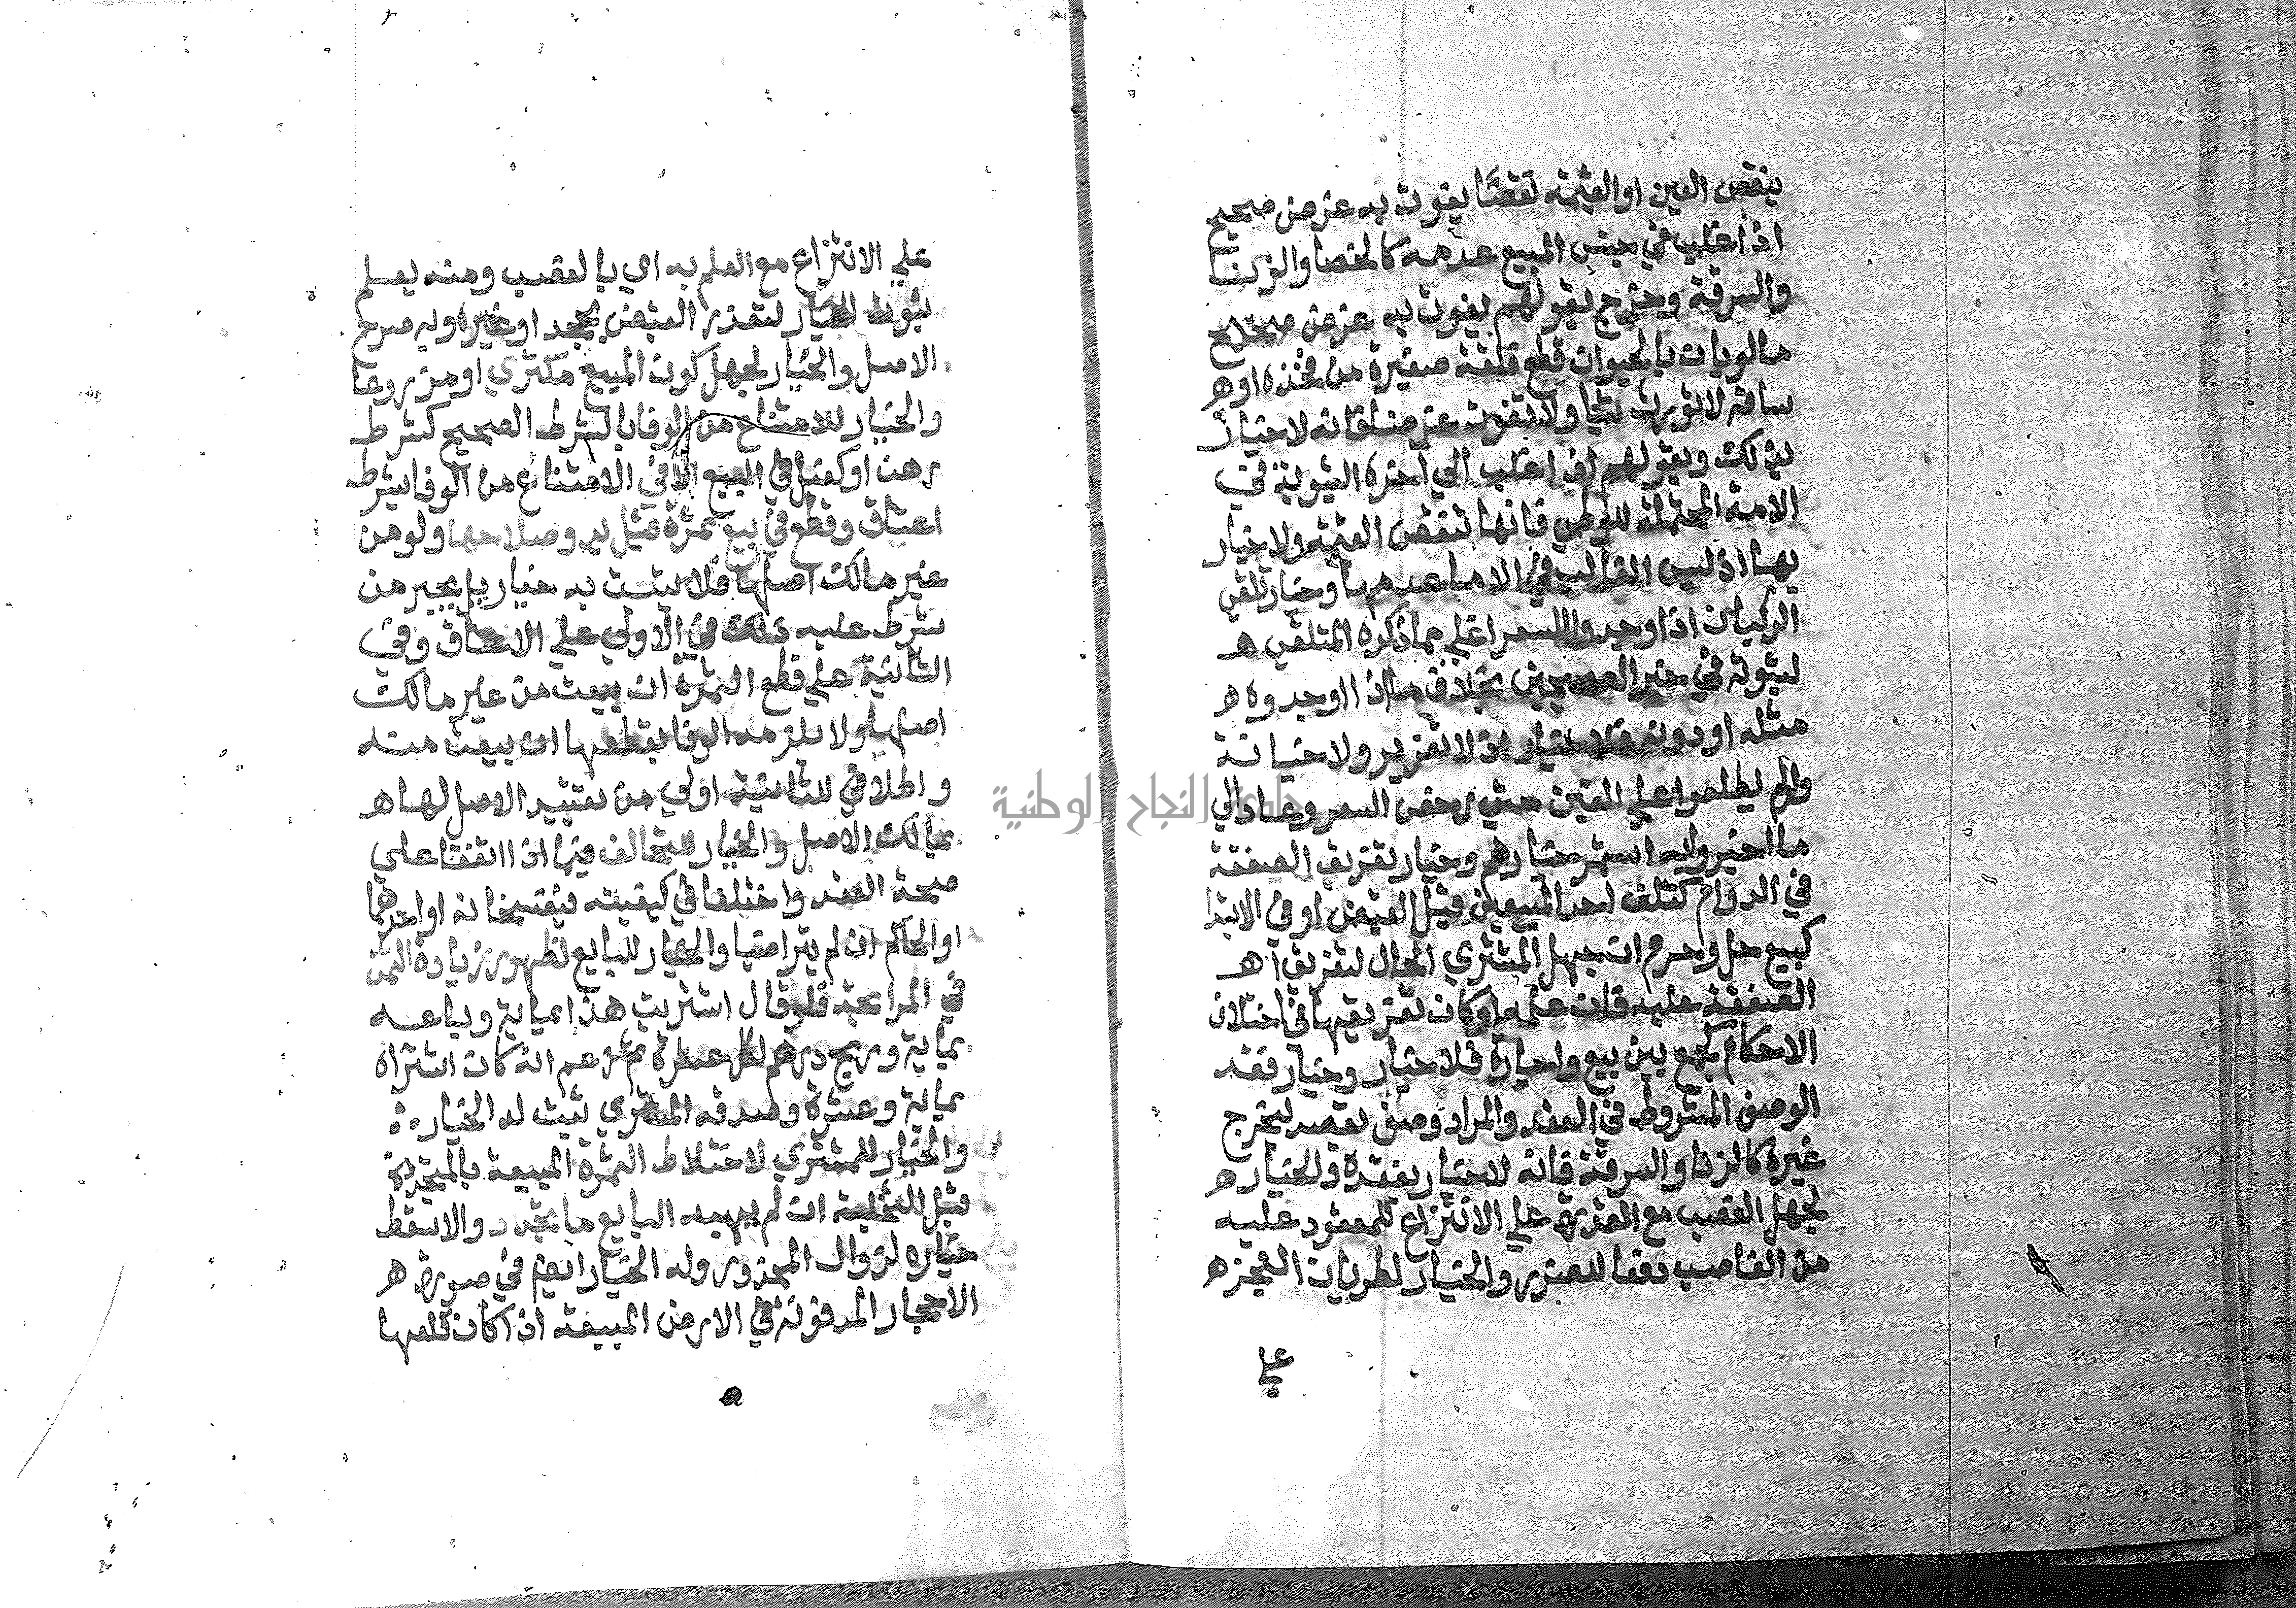 ينقص العين او القيمة نقصًا يفوت به غرض صحيح
اذا غلب في جنس المبيع عدمه كالخصا والزنا
والسرقة وخرج بقولهم يفوت به غرض صحيح
مالوبان بالحيوان قطع فلقة صغيرة من فخذه او ه
ساقه لا تورث شيا ولا تفوت غرضا فانه لا خيار
بذلك وبقولهم اذا غلب الي اخره الثيوبة في
الامة المحتملة للوطي فانها تنقص القيمة ولا خيار
بها اذ ليس الغالب في الاما عدمها وخيار تلقي
الركبان اذا وجدوا السعر اغلي مما ذكره المتلقي ه
لثبوته في خبر الصحيحين بخلاف ما اذا وجدوه ه
مثله او دونه فلا خيار اذ لا تغرير ولا خيانة
ولو لم يطلعوا علي الغبن حتي رخص السعر وعاد الي
ما اخبروا به استمر خيارهم وخيار تفريق الصفقة
في الدوام كتلف احد المبيعين قبل القبض او في الابتدا
كبيع حل وحرم ان جهل المشتري الحال لتفريق ا ه
الصفقة عليه فان علمه او كان تفريقها في اختلاف
الاحكام كجمع بين بيع واجارة فلا خيار وخيار فقد
الوصف المشروط في العقد والمراد وصف يقصد ليخرج
غيره كالزنا والسرقة فانه لا خيار بفقده والخيار ه
لجهل الغصب مع القدرة علي الانتزاع للمعقود عليه
من الغاصب دفعا للضرر والخيار لطريان العجز ه
علي
علي الانتزاع مع العلم به اي بالغصب ومنه يعلم
ثبوت الخيار لتعذر القبض بجحد او غيره وبه صرح
الاصل والخيار لجهل كون المبيع مكتري او مزروعا
والخيار للامتناع من الوفا بالشرط الصحيح كشرط
رهن او كفيل في البيع لا في الامتناع من الوفا بشرط
اعتاق وقطع في بيع ثمرة قبل بدو صلاحها ولو من
غير مالك اصلها فلا يثبت به خيار بل يجبر من
شرط عليه ذلك في الاولي علي الاعتاق وفي
الثانية علي قطع الثمرة ان بيعت من غير مالك
اصلها ولا يلزمه الوفا بقطعها ان بيعت منه
واطلاقي للثانية اولي من تقييد الاصل لها ه
بمالك الاصل والخيار للتحالف فيما اذا اتفقا علي
صحة العقد واختلفا في كيفيته فيفسخانه او احدهما
او الحاكم ان لم يتراضيا والخيار للبايع لظهور زيادة الثمن
في المرابحة فلو قال اشتريت هذا بماية وباعه
بماية وربح درهم لكل عشرة ثم زعم انه كان اشتراه
بماية وعشرة وصدقه المشتري ثبت له الخيار ه
والخيار للمشتري لاختلاط الثمرة المبيعة بالمتجددة
قبل التخلية ان لم يهبه البايع ما تجدد والا سقط
خياره لزوال المحذور وله الخيار ايضا في صورة ه
الاحجار المدفونة في الارض المبيعة اذا كان قلعها
جامعة النجاح الوطنية